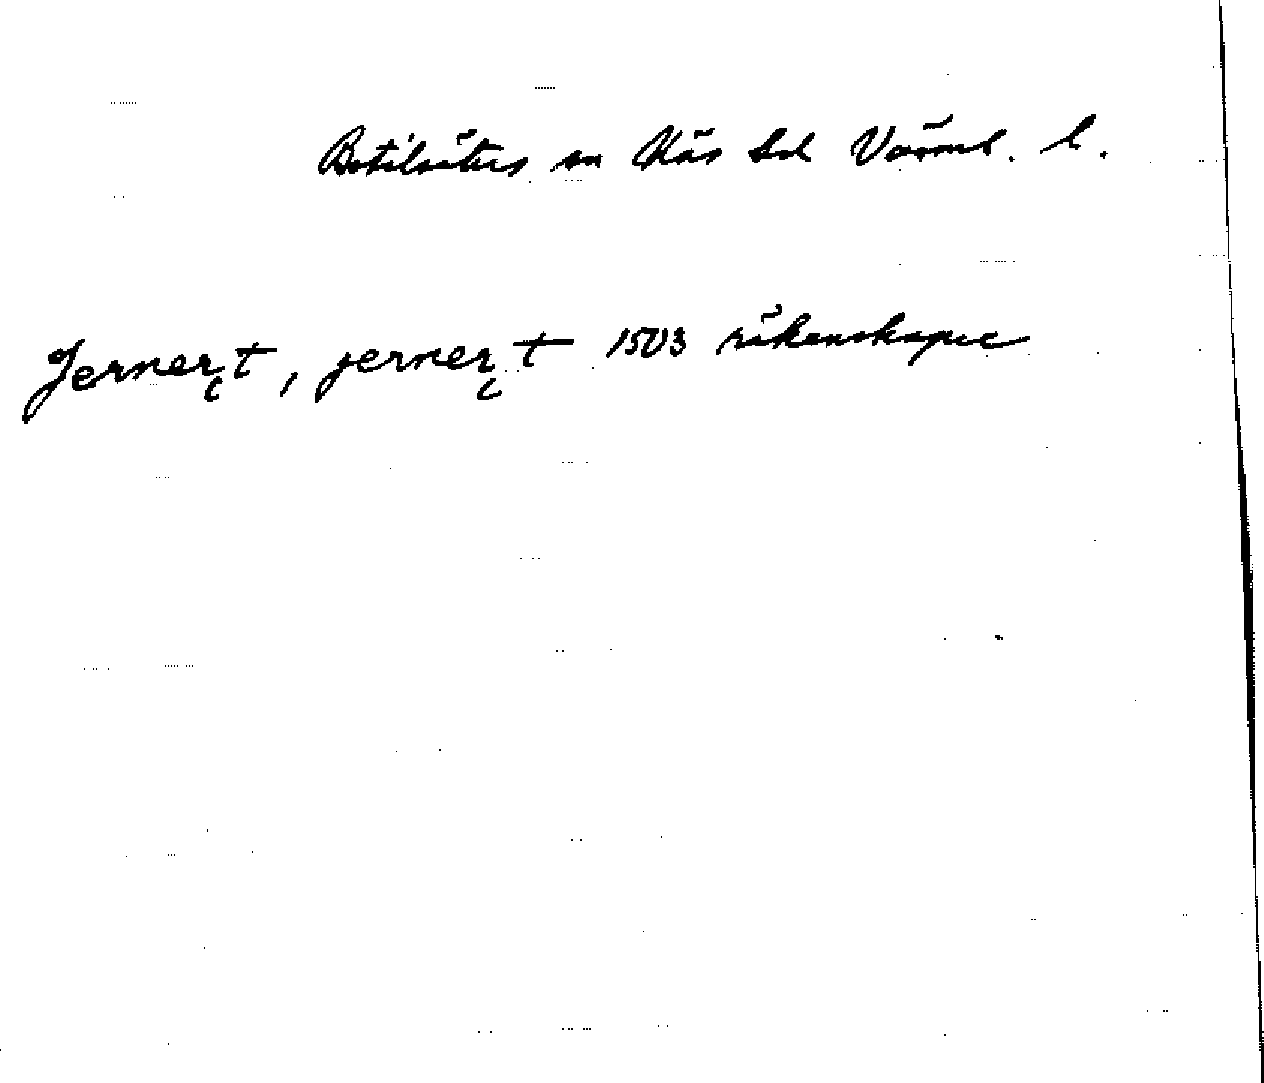 Botilsäters sn Näs hd Värml. l.
Jernerc̨t, jernerc̨t 1503 räkenskaper